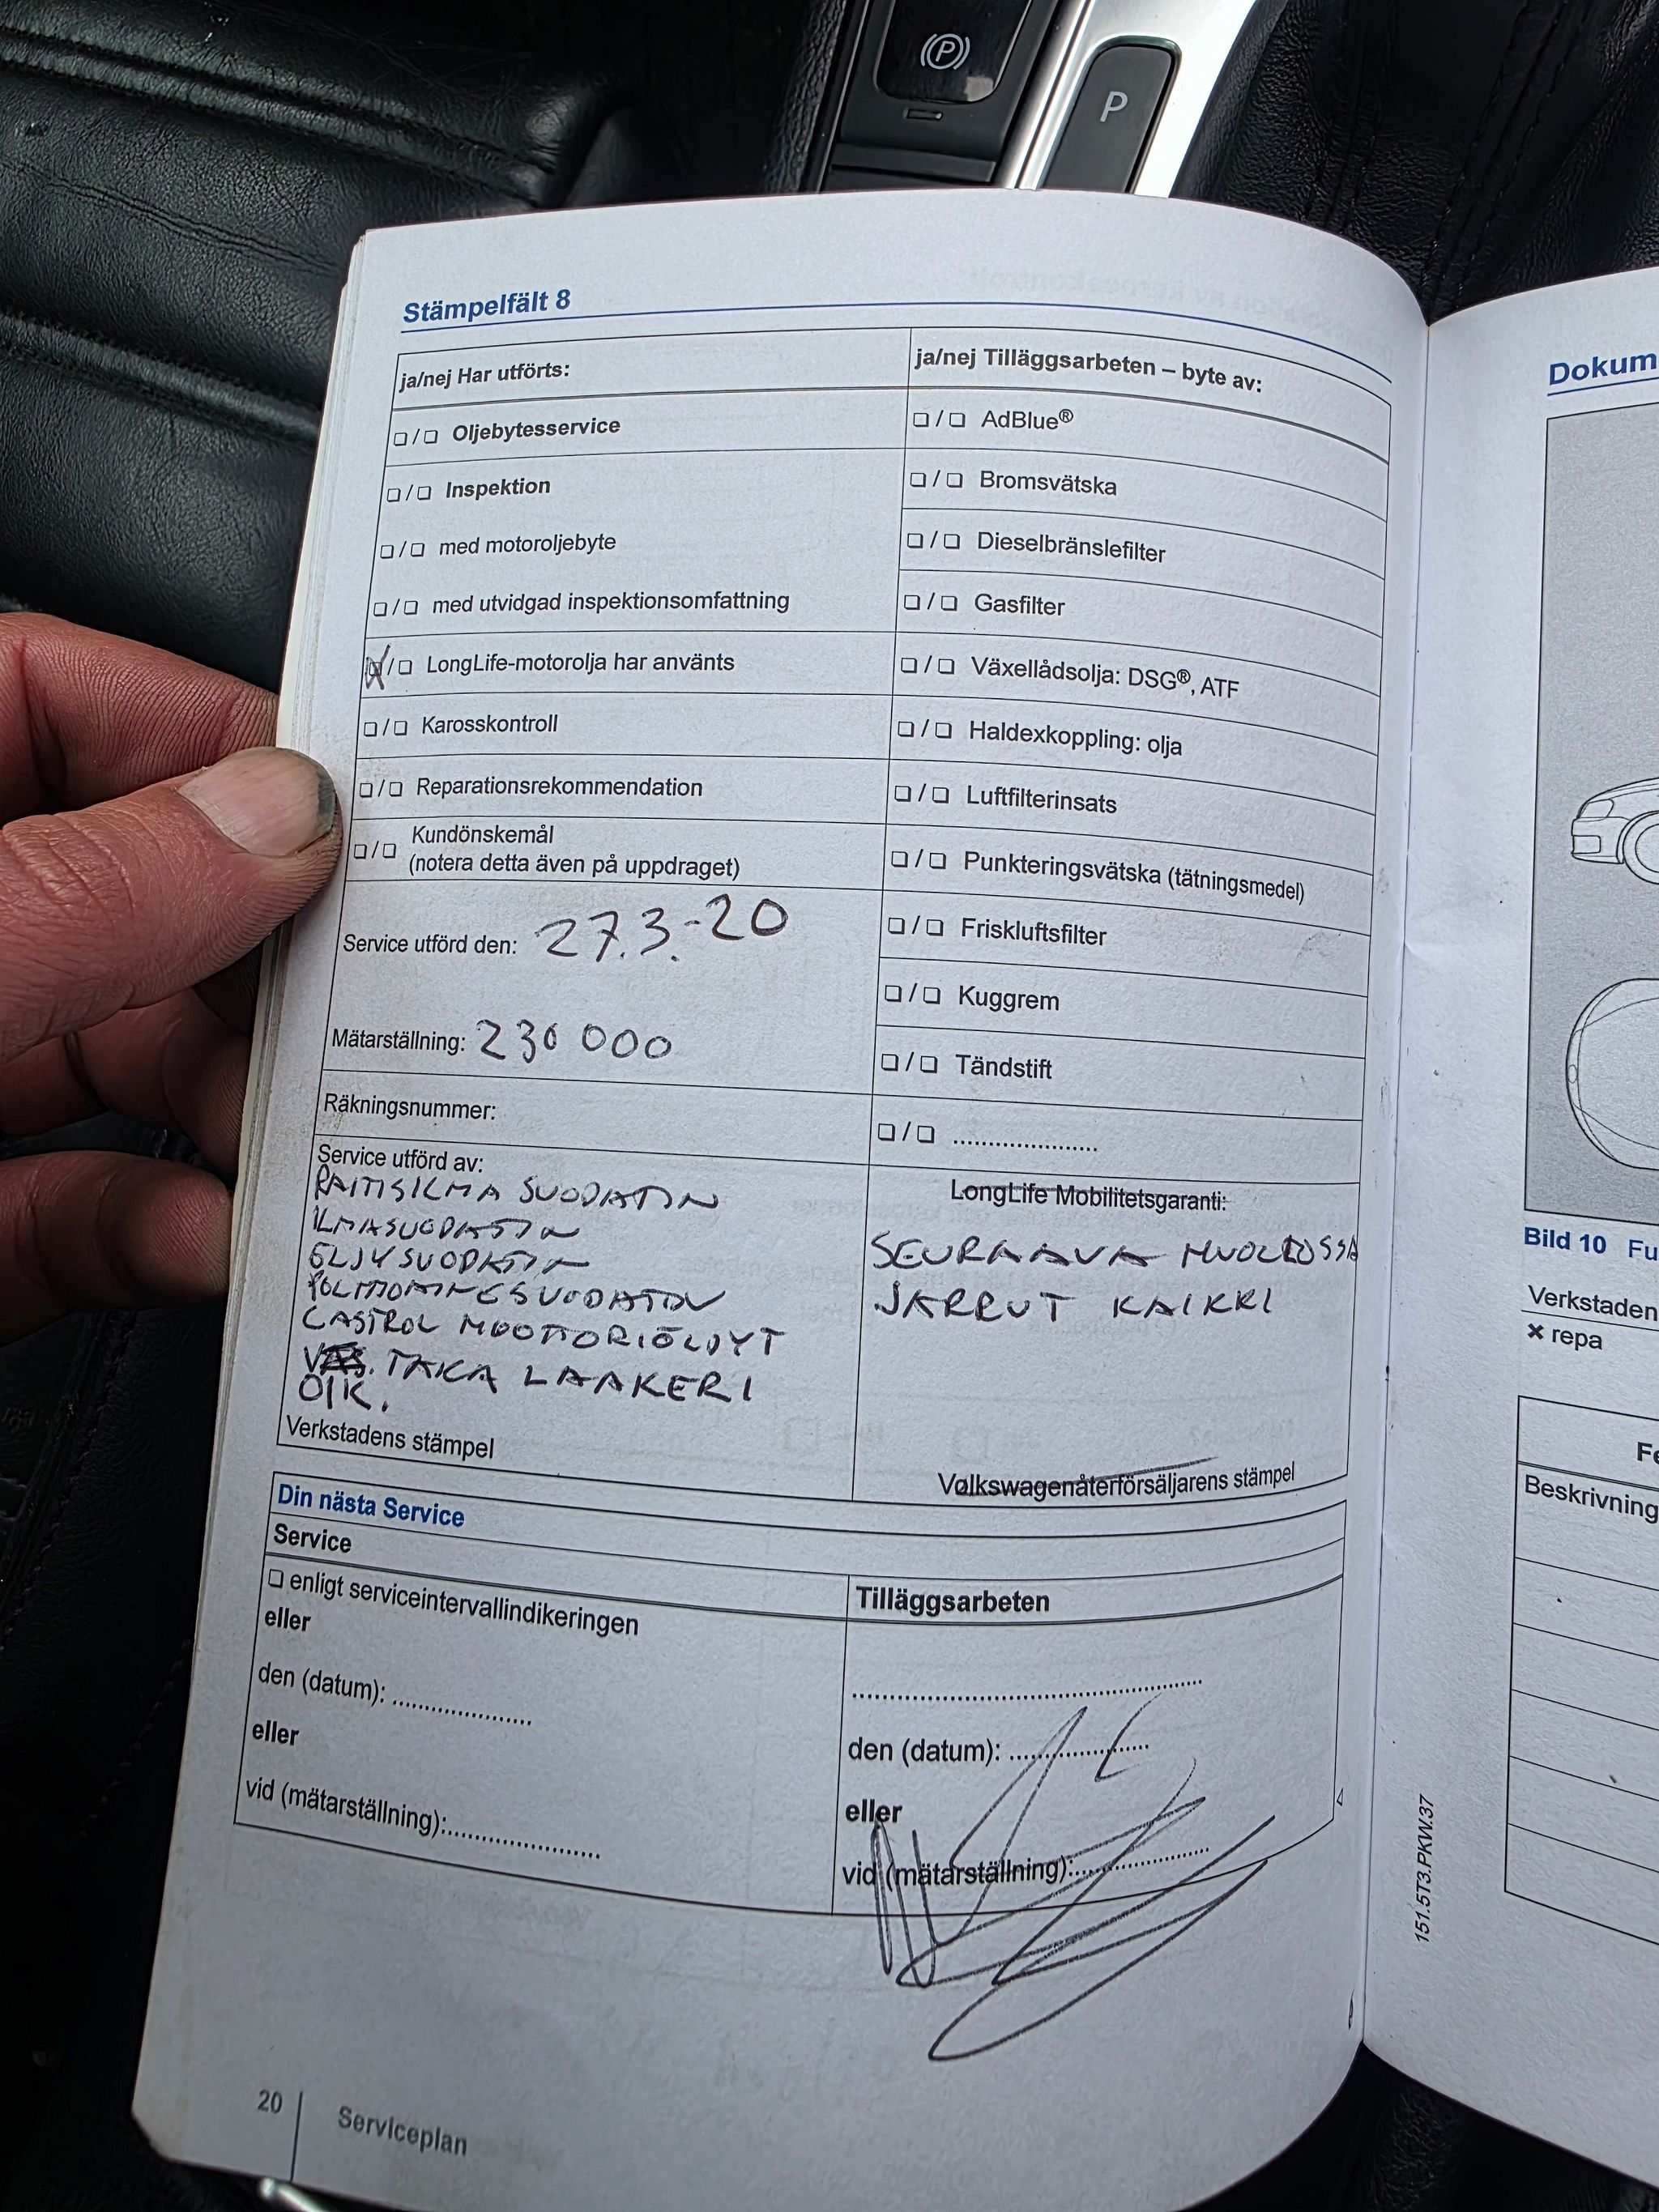 P
P
Stämpelfält 8
ja/nej Har utförts:
❏/❏ Oljebytesservice
❏/❏ Inspektion
❏/❏ med motoroljebyte
❏/❏ med utvidgad inspektionsomfattning
❏/❏ LongLife-motorolja har använts
❏/❏ Karosskontroll
❏/❏ Reparationsrekommendation
❏/❏ Kundönskemål
(notera detta även på uppdraget)
Service utförd den: 27.3.-20
Mätarställning: 230 000
Räkningsnummer:
Service utförd av:
RAITISILMA SUODATIN
ILMASUODATIN
ÖLJYSUODATIN
POLTTOAINESUODATIN
CASTROL MOOTTORIÖLJYT
TAKA LAAKERI
OIK.
Verkstadens stämpel
ja/nej Tilläggsarbeten – byte av:
❏/❏ AdBlue®
❏/❏ Bromsvätska
❏/❏ Dieselbränslefilter
❏/❏ Gasfilter
❏/❏ Växellådsolja: DSG®, ATF
❏/❏ Haldexkoppling: olja
❏/❏ Luftfilterinsats
❏/❏ Punkteringsvätska (tätningsmedel)
❏/❏ Friskluftsfilter
❏/❏ Kuggrem
❏/❏ Tändstift
❏/❏ .....................
LongLife Mobilitetsgaranti:
SEURAAVA HUOLLOSSA
JARRUT KAIKKI
Volkswagenåterförsäljarens stämpel
Din nästa Service
Service
❏ enligt serviceintervallindikeringen
eller
den (datum): ....................
eller
vid (mätarställning):......................
Tilläggsarbeten
..................................................
den (datum): ....................
eller
vid (mätarställning):....................
20
Serviceplan
151.5T3.PKW.37
Dokum
Bild 10 Fu
Verkstaden
× repa
Fe
Beskrivning